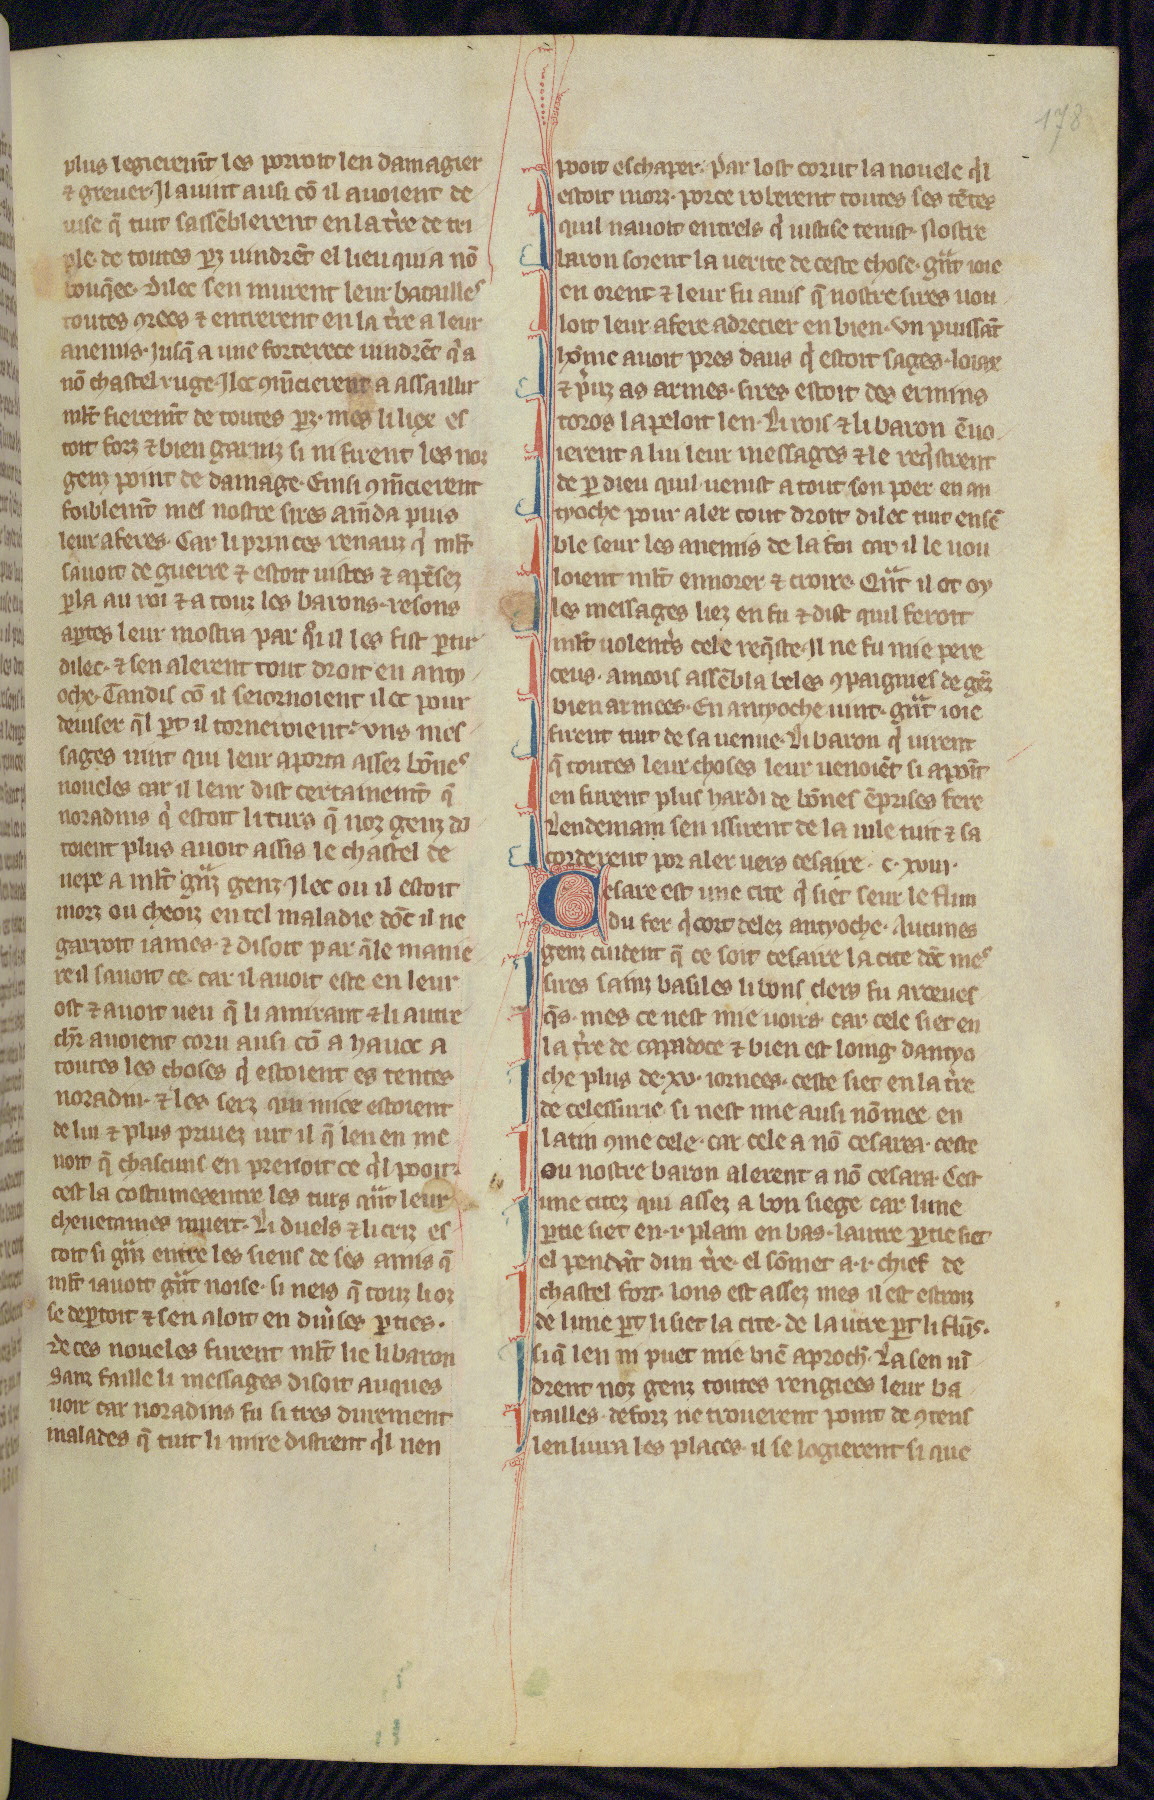 178
plus legieremt̄ les porroit len damagier
⁊ greuer· Il auint ausi cō il auoient de
uise q̄ tuit sassēblerent en la t̄re de tri
ple· de toutes pz uindrēt el lieu qui a nō
bouq̄ee· Dilec sen murent leur batailles
toutes ꝯrees ⁊ entrerent en la t̄re a leur
anemis· Iusq̄ a une forterece uindrēt q̇ a
nō chastel ruge· Ilec ꝯm̄cierent a assaillir
ml̄t fierem̄t de toutes pz· mes li liex es
toit forz ⁊ bien garniz si ni firent les noz
genz point de damage· Einsi ꝯm̄cierent
foiblem̄t mes nostre sires am̄da puis
leur aferes· Car li princes renauz q̇ ml̄t
sauoit de guerre ⁊ estoit uistes ⁊ apēsez
ꝑla au roi ⁊ a touz les barons· resons
aꝑtes leur mostra par qi il les fist ꝑtir
dilec· ⁊ sen alerent tout droit en anty
oche· Tandis cō il seiornoient ilec pour
deuiser ql ꝑt il torneroient· uns mes
sages uint qui leur aporta assez bōnes
noueles car il leur dist certainem̄t q̄
noradins q̇ estoit li turs q̄ noz genz do
toient plus auoit assis le chastel de
nepe a ml̄t gnz genz· Ilec ou il estoit
morz ou cheoiz en tel maladie dōt il ne
garroit iames· ⁊ disoit par qle manie
re il sauoit ce· car il auoit este en leur
ost ⁊ auoit ueu q̄ li amirant ⁊ li autre
chr̄ auoient coru ausi cō a hauoc a
toutes les choses q̇ estoient es tentes
noradin· ⁊ les serz qui mice estoient
de lui ⁊ plus priuez uit il q̄ len en me
noit q̄ chascuns en prenoit ce ql pooit·
cest la costume entre les turs qnt leur
cheuetaines muert· Li duels ⁊ li criz es
toit si gnz entre les siens de ses amis q̄
ml̄t iauoit gnt noise· si neis q̄ touz li oz
se deꝑtoit ⁊ sen aloit en diūses ꝑties·
De ces noueles furent ml̄t lie li baron
Sanz faille li messages disoit auques
uoir car noradins fu si tres durement
malades q̄ tuit li mire distrent ql nen
pooit eschaper· Par lost corut la nouele ql
estoit morz· porce roberent toutes ses tētes
quil nauoit entrels q̇ iustise tenist· Nostre
baron sorent la uerite de ceste chose· gnt ioie
en orent ⁊ leur fu auis q̄ nostre sires uou
loit leur afere adrecier en bien· Vn puissāt
hōme auoit pres daus q̇ estoit sages· loiax
⁊ p̄uz as armes· sires estoit des ermins
toros lapeloit len· Li rois ⁊ li baron ēuo
ierent a lui leur messages ⁊ le req̇strent
de ꝑ dieu quil uenist a tout son poer en an
tyoche pour aler tout droit dilec tuit ensē
ble seur les anemis de la foi car il le uou
loient ml̄t ennorer ⁊ croire· Qnt il ot oy
les messages liez en fu ⁊ dist quil feroit
ml̄t uolent̄s cele req̄ste· Il ne fu mie pere
ceus· ancois assēbla beles ꝯpaignies de gēz
bien armees· En antyoche uint· gnt ioie
firent tuit de sa uenue· Li baron q̇ uirent
q̄ toutes leur choses leur uenoiēt si apoīt
en furent plus hardi de bōnes ēprises fere
Lendemain sen issirent de la uile tuit ⁊ sa
corderent por aler uers cesaire· c· xviii·
Cesare est une cite q̇ siet seur le flun
du fer q̇ cort delez antyoche· Autunes
genz cuident q̄ ce soit cesaire la cite dōt mes
sires sainz basiles li bons clers fu arceues
qs· mes ce nest mie uoirs· car cele siet en
la t̄re de capadoce ⁊ bien est loing dantyo
che plus de· xv· iornees· ceste siet en la t̄re
de celessurie· si nest mie ausi nōmee en
latin ꝯme cele· car cele a nō cesarea· ceste
ou nostre baron alerent a nō cesara· Cest
une citez qui assez a bon siege car lune
ꝑtie siet en· i· plain en bas· lautre ꝑtie siet
el pendāt dun t̄re· el sōmet a· i· chief de
chastel fort· lons est assez mes il est estroiz
de lune ꝑt li siet la cite· de lautre ꝑt li flūs·
si q̄ len ni puet mie biē aproch̄· La sen ui
drent noz genz toutes rengiees leur ba
tailles· de forz ne trouerent point de ꝯtens
len liura les places· il se logierent si que